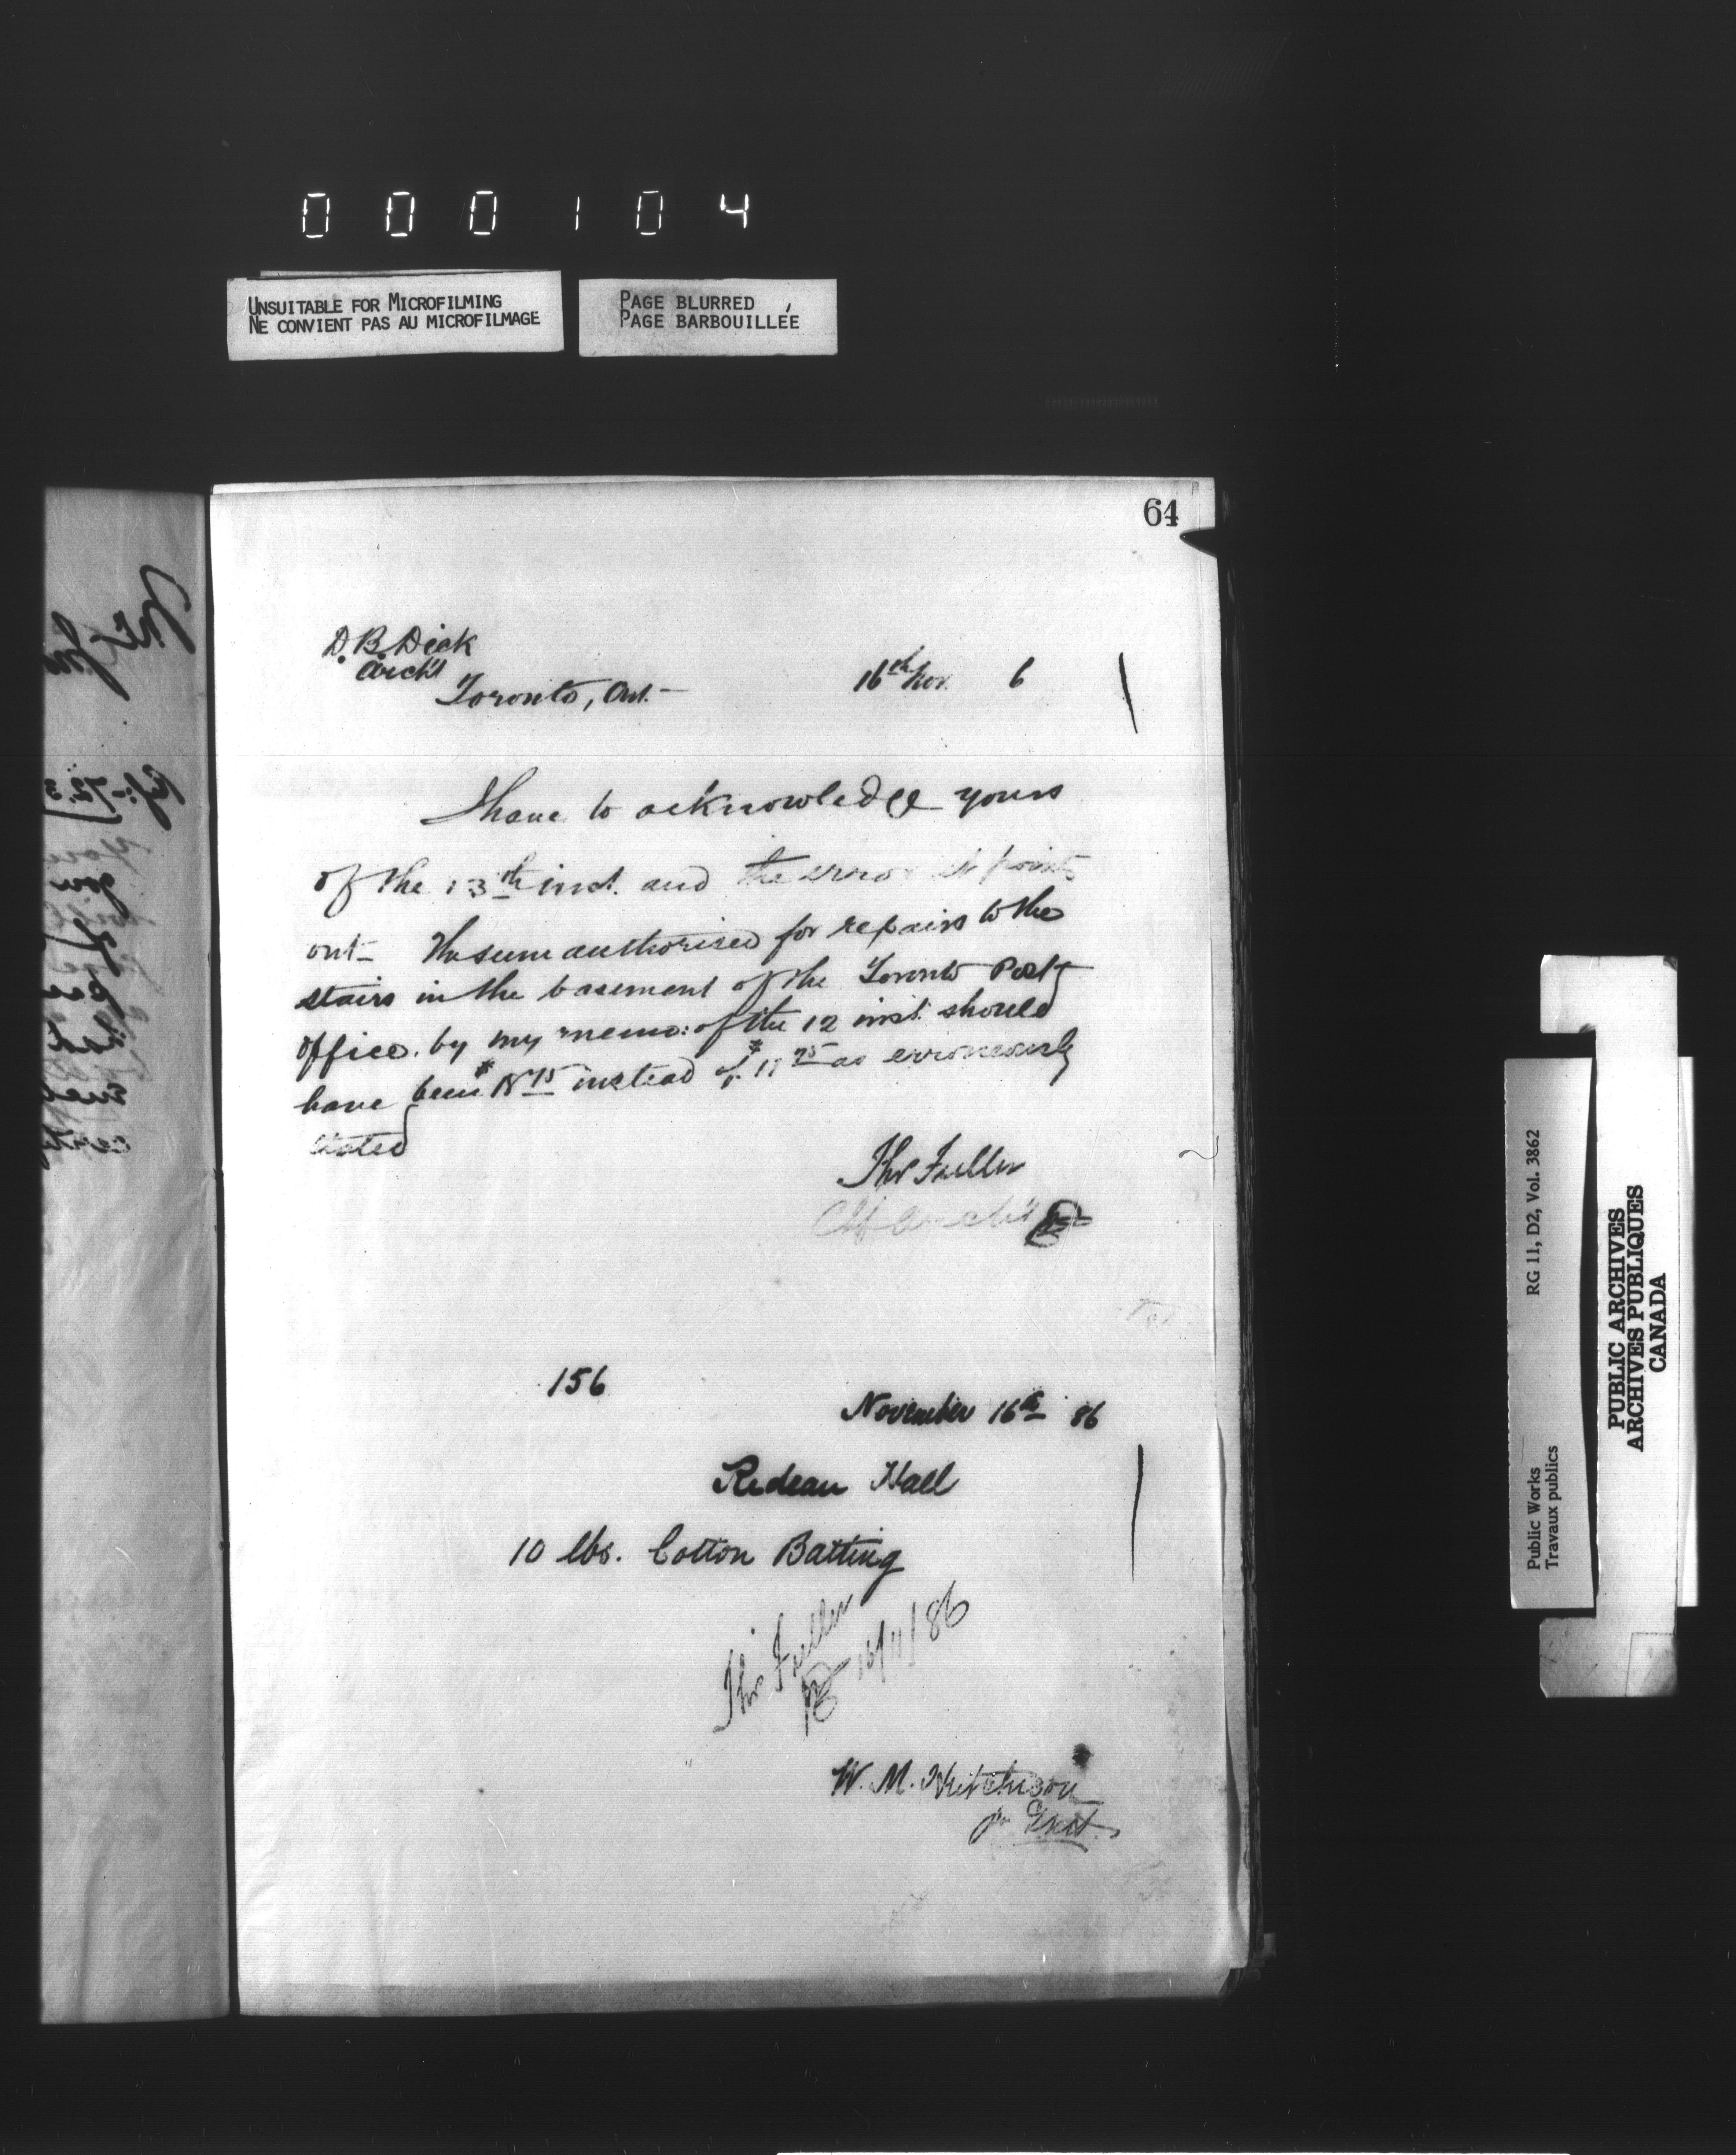 000104
UNSUITABLE FOR MICROFILMING
NE CONVIENT PAS AU MICROFILMAGE
PAGE BLURRED
PAGE BARBOUILLÉE
64
D. B. Dick
Arch't
Toronto, Ont.—
16th Nov. 6
I have to acknowledge yours
of the 13th inst. and the error it points
out— The sum authorised for repairs to the
stairs in the basement of the Toronto Post
Office. by my memo: of the 12 inst. should
have been $18.75 instead of $17.75 as erroneously
stated
Thos Fuller
Chf Arch't
156
November 16th 86
Redeau Hall
10 lbs. Cotton Batting
Thos Fuller
16/11/86
W. M. Hutchison
RG 11, D2, Vol. 3862
Public Works
Travaux publics
PUBLIC ARCHIVES
ARCHIVES PUBLIQUES
CANADA